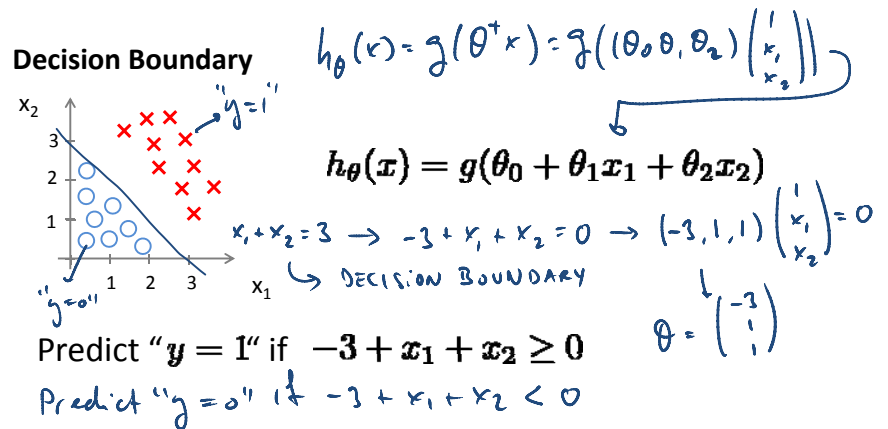 h_θ(x) = g(θᵀx) = g((θ₀ θ₁ θ₂) (1 x₁ x₂))
Decision Boundary
x₂
"y=1"
3
2
1
h_θ(x) = g(θ₀ + θ₁x₁ + θ₂x₂)
x₁ + x₂ = 3 → -3 + x₁ + x₂ = 0 → (-3, 1, 1) (1 x₁ x₂) = 0
↳ DECISION BOUNDARY
1 2 3 x₁
"y=0"
θ = (-3 1 1)
Predict “y = 1“ if -3 + x₁ + x₂ ≥ 0
Predict "y = 0" if -3 + x₁ + x₂ < 0